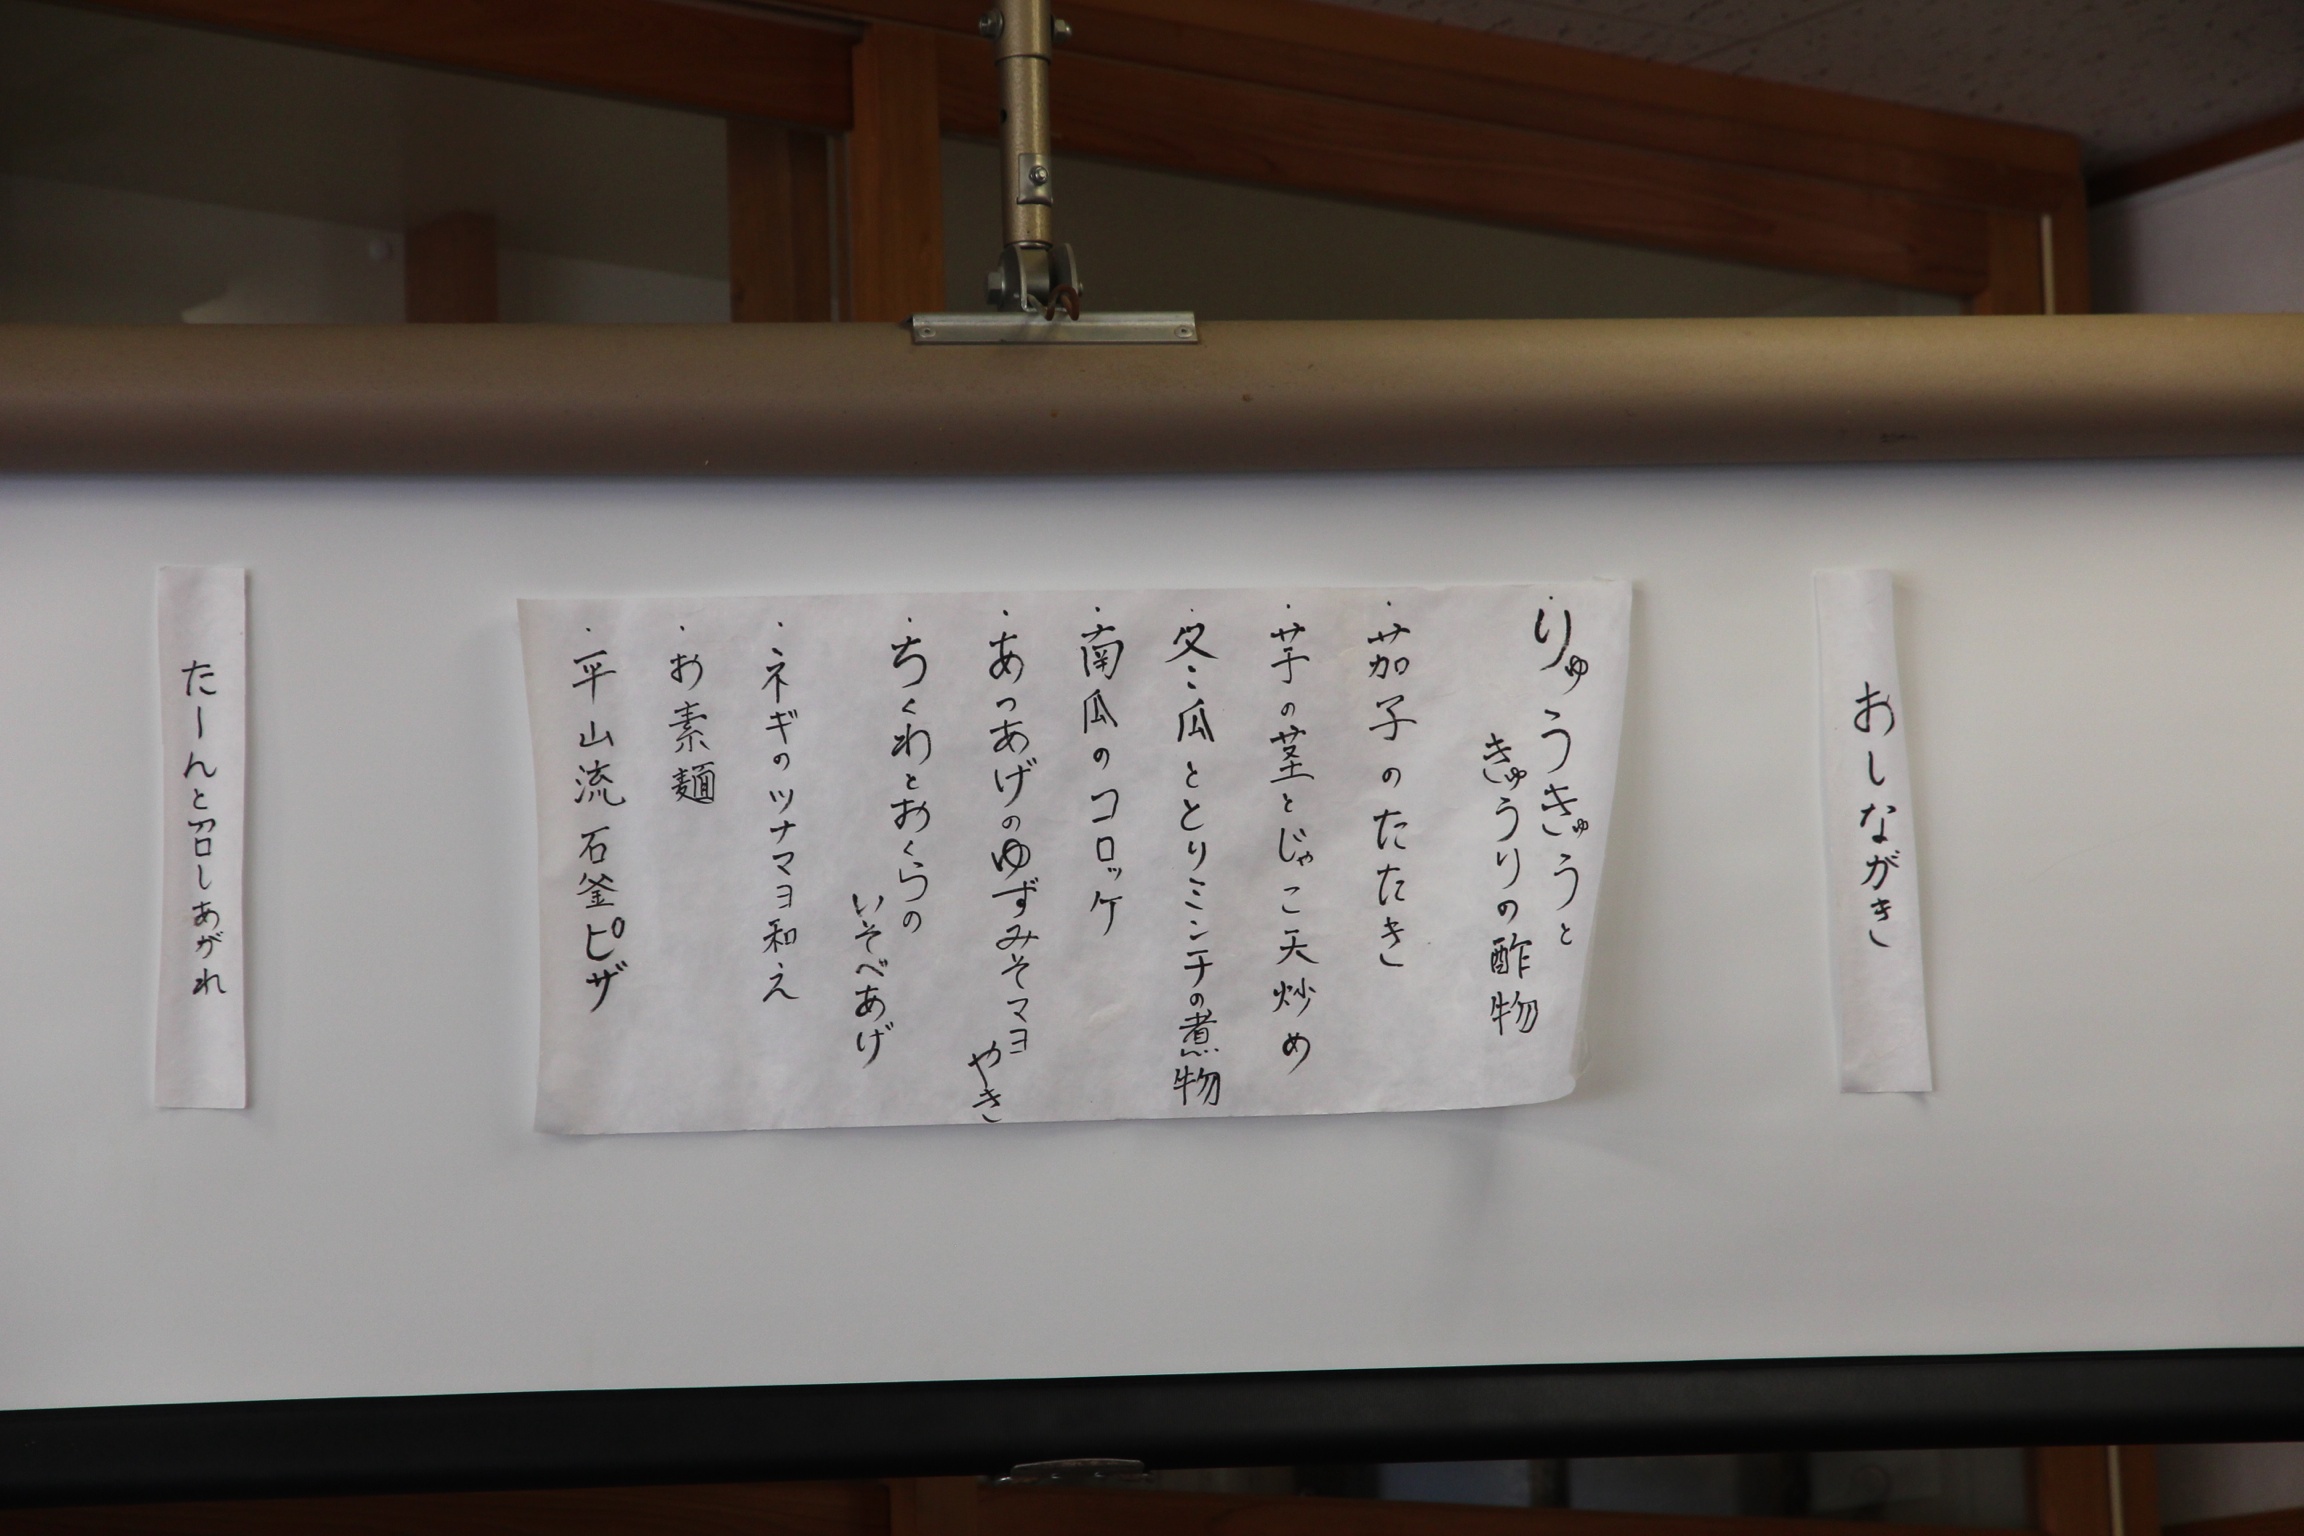 おしながき
・りゅうきゅうと
きゅうりの酢物
・茄子のたたき
・芋の茎とじゃこ天炒め
・冬瓜ととりミンチの煮物
・南瓜のコロッケ
・あつあげのゆずみそマヨ
やき
・ちくわとおくらの
いそべあげ
・ネギのツナマヨ和え
・お素麺
・平山流石釜ピザ
たーんと召しあがれ